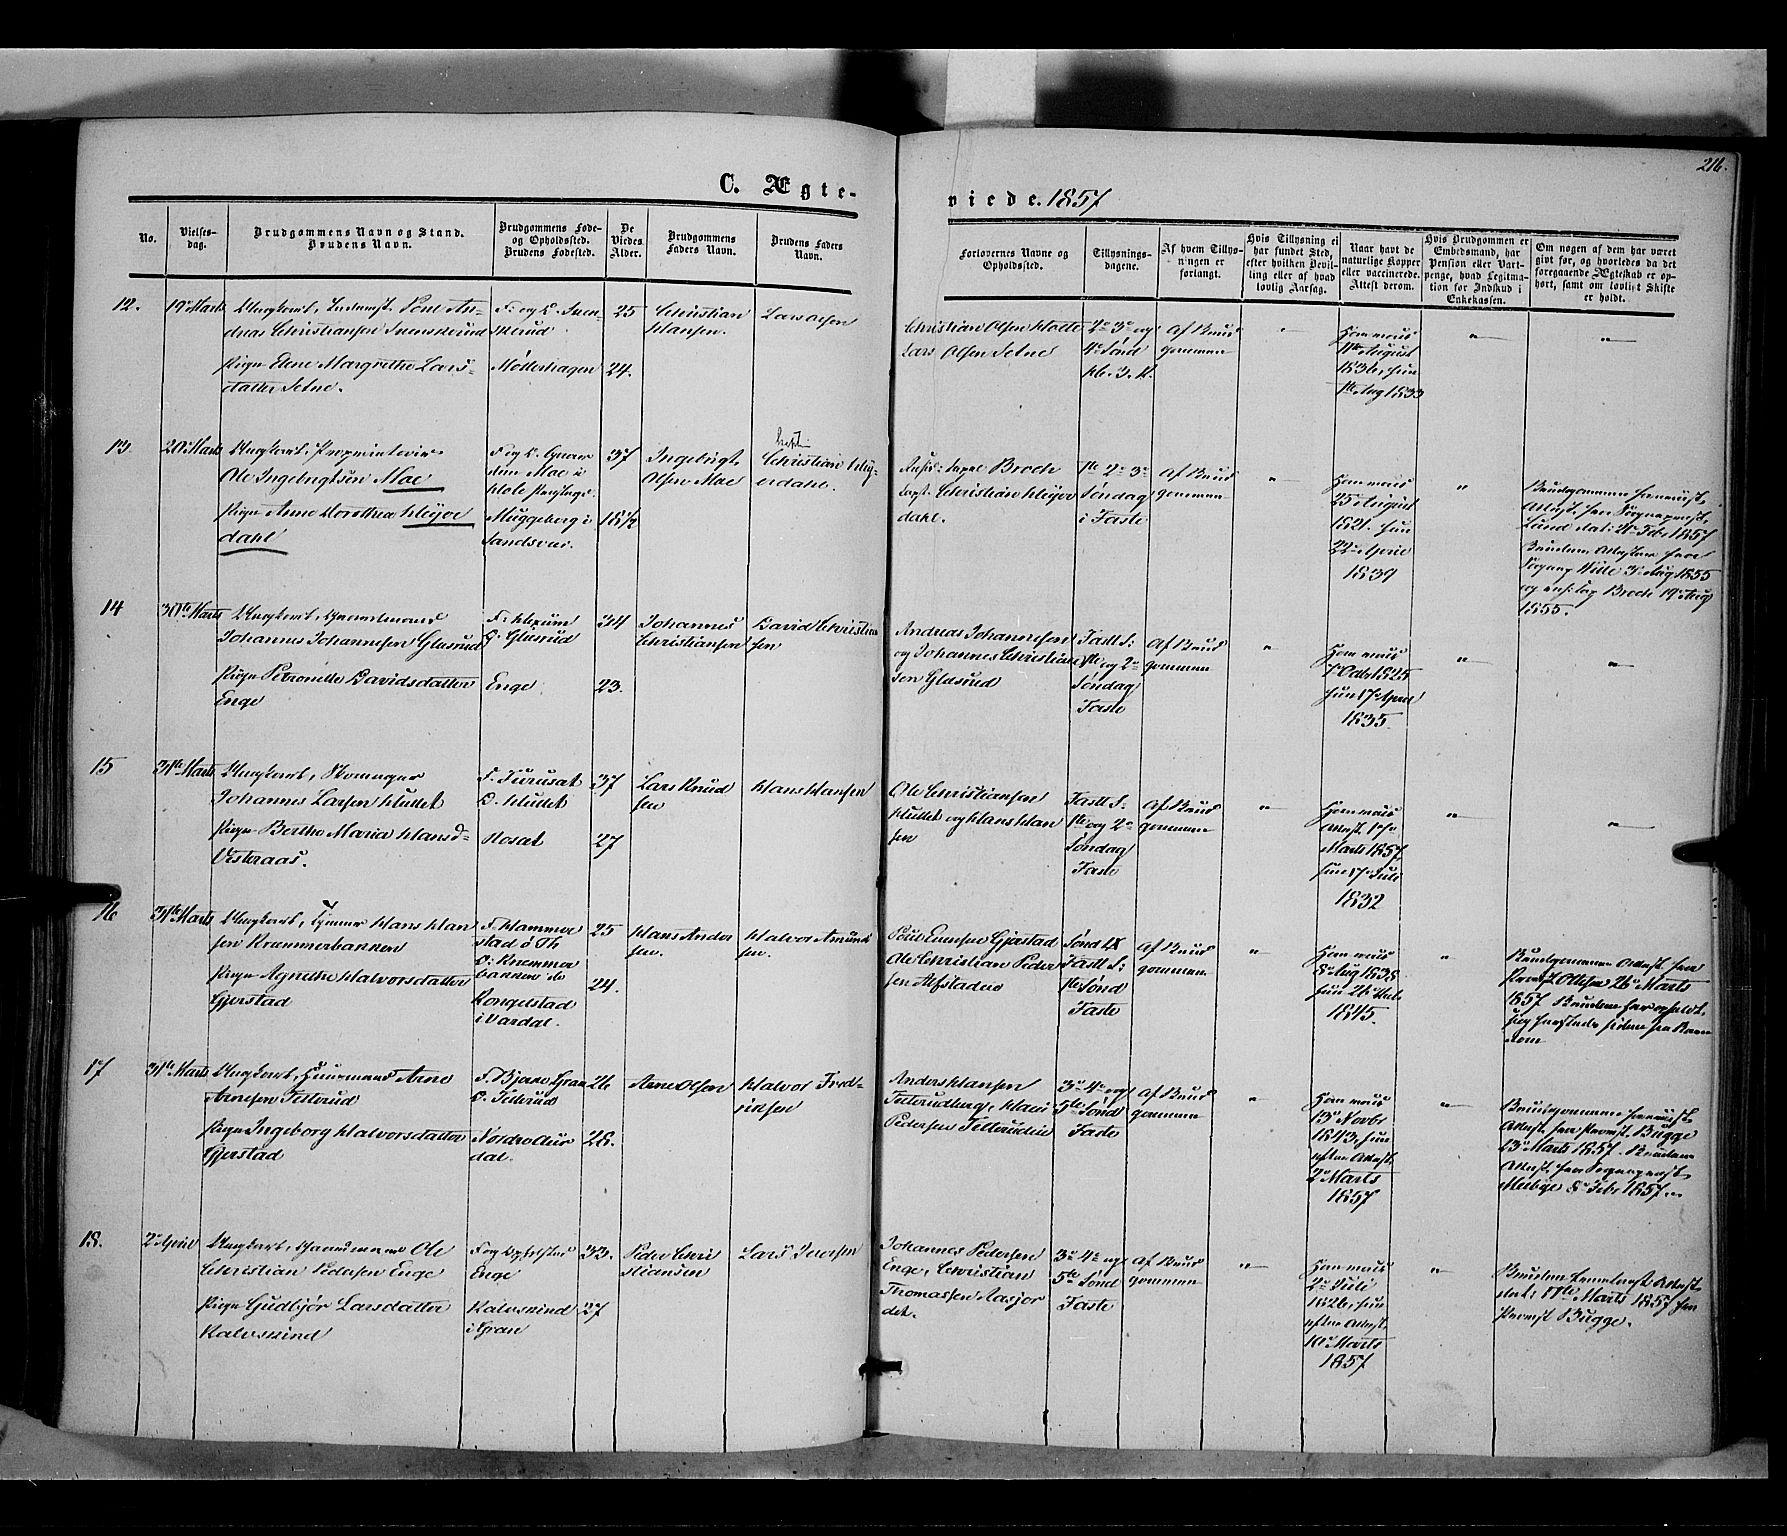 216.
C. Ægte-
viede. 1857
No.
Vielses-
dag.
Brudgommens Navn og Stand.
Brudens Navn.
Brudgommens Føde-
og Opholdssted.
Brudens Fødested.
De
Viedes
Alder.
Brudgommens
Faders Navn.
Brudens Faders
Navn.
Forlovernes Navne og
Opholdssted.
Tillysnings-
dagene.
Af hvem Tillys-
ningen er
forlangt.
Hvis Tillysning ei
har fundet Sted,
efter hvilken Bevil-
ling eller af hvad
lovlig Aarsag.
Naar havt de
naturlige Kopper
eller vaccinerede.
Attest derom.
Hvis Brudgommen er
Embedsmand, har
Pension eller Vart-
penge, hvad Legitma-
tion for Indskud i
Enkekassen.
Om nogen af dem har været
givt før, og hvorledes da det
foregaaende Ægteskab er op-
hørt, samt om lovligt Skifte
er holdt.
12.
19 Marts
Ungkarl, Poul An-
dreas Christiansen Svenskerud
Pige Elene Margrethe Lars-
datter Setne.
F. og O. Sven-
skerud
Møllerhagen
25
24.
Christian
Hansen.
Lars Olsen
Christian Olsen
Lars Olsen Setne
2. 3. og
4. Sønd
Af Brud
gommen
Ham
August
1836, hun
Aug 1833
13.
20 Marts
Ungkarl, Proprietair
Ole Ingebrigtsen Moe
Pige Anne Dorothea Heyer
dahl
F. og O.
Moe i
Hole
Muggeberg i
Sandsvær.
37
18½
Ingebrigt
Olsen Moe
Christian Hey-
erdahl.
Broch
Capt. Christian Heyer
dahl.
2. 3.
Søndag
i Faste
Af Brud
gommen
25 August
1821. hun
22 April
1839
Brudgommen
Attest fra Sogneprest
Lund Feb. 1857
Bruden Attester fra
Wille Aug 1855
og Broch 19 Aug
1855.
14
30te Marts
Ungkarl, Gaardmand
Johannes Johannesen Glæsrud
Pige Petronelle Davidsdatter
Enge
F.
O. Glæsrud
Enge
34
23.
Johannes
Christiansen
David Christian
sen
Andreas Johannesen
og Johannes Christian
sen Glæsrud
Fastl S.
og 2.
Søndag
Faste
Af Brud
gommen
1825
hun 17 April
1835.
15
31te Marts
Ungkarl,
Johannes Larsen Hullet
Pige Berthe Maria Hansd-
Vesteraas.
O. Hullet
Rosæt
37
27
Lars Knud
sen
Hans Hansen
Ole Christiansen
Hullet og Hans Han
sen
Fastl S.
og 2.
Søndag
Faste
Af Brud
gommen
Marts 1857
hun 17 Juli
1832
16
31te Marts
Ungkarl, Hans Han
sen Kræmmerbakken
Pige Agnethe Halvorsdatter
Gjerstad
F. Hammer
stad ø. Th
O. Kræmmer
bakken
Kongelstad
i Vardal.
25
24.
Hans Ander
sen.
Halvor Amund
sen.
Poul Evensen Gjerstad
Ole Christian Peder
sen Alfstadeie
Sønd LX
Fastl S.
Sønd
Faste
Af Brud
gommen
Aug 1838
hun 26
1845.
Brudgommen Attest fra
Ottesen 26 Marts
1857
17
31te Marts
Ungkarl, Huusmand Arne
Arnesen Tetterud
Pige Ingeborg Halvorsdatter
Gjerstad
F. Bjerne Gran
O. Tetterud
Nordre Aur
dal.
26
28.
Arne Olsen
Halvor
Anders Hansen
Tetterudberg,
Pedersen Tetterudeie
3. 4. og
5te Sønd
Faste
Af Brud
gommen
13 Novbr
1843, hun
efter Attest
2 Marts
1857
Brudgommen
Attest fra Provst Bugge
23 Marts 1857. Bruden
Attest fra Sogneprest
8 Febr 1857.
18.
2 April
Ungkarl, Gaardmand Ole
Christian Pedersen Enge
Pige Gudbjør Larsdatter
Kalvskind
F og Opholdsted
Enge
Kalvskind
i Gran
33.
27
Peder Chri
stiansen
Lars Iversen
Johannes Pedersen
Enge, Christian
Thomassen Aasjor
det.
3. 4. og
5te Sønd
Faste
Af Brud
gommen
2 Juli
1826, hun
efter Attest
10 Marts
1857
Bruden Attest
Marts 1857 fra
Provst Bugge.